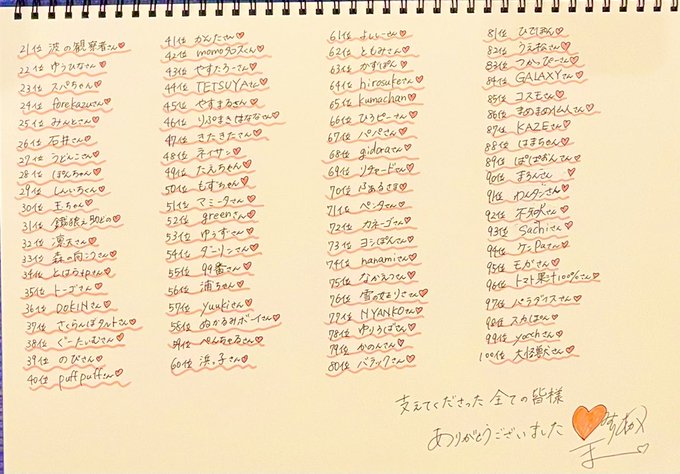 21位 波の観察者さん♡
22位 ゆうひなさん♡
23位 スパちゃん♡
24位 forekazuさん♡
25位 みんとさん♡
26位 石井さん♡
27位 うどんこさん♡
28位 ぽんちゃん♡
29位 しんいちくん♡
30位 王ちゃん♡
31位 餓狼え助どの♡
32位 凜太さん♡
33位 森の向こうさん♡
34位 とはらねさん♡
35位 トーゴさん♡
36位 DOKINさん♡
37位 さくらんぼタルトさん♡
38位 ぐーたいむさん♡
39位 のびさん♡
40位 puffpuffさん♡
41位 かんたさん♡
42位 momoタロスくん♡
43位 やすたろーさん♡
44位 TETSUYAさん♡
45位 やすまるさん♡
46位 りぷまきはななさん♡
47位 きたきたさん♡
48位 ネイサン♡
49位 たえちゃん♡
50位 もずちゃん♡
51位 マミータさん♡
52位 greenさん♡
53位 ゆうずさん♡
54位 ダニリンさん♡
55位 99番さん♡
56位 浦ちゃん♡
57位 yuukiさん♡
58位 ぬかるみボーイさん♡
59位 ぺんちゃるさん♡
60位 浜っ子さん♡
61位 よしいーさん♡
62位 ともみさん♡
63位 かずぽん♡
64位 hirosukeさん♡
65位 kumachan♡
66位 ひろピーさん♡
67位 パパさん♡
68位 gidoraさん♡
69位 リチャードさん♡
70位 ふぁるさま♡
71位 ペンタさん♡
72位 カネーゴさん♡
73位 ヨシぽんさん♡
74位 nanamiさん♡
75位 なかえつさん♡
76位 雪の宿りさん♡
77位 NYANKOさん♡
78位 ゆりろばさん♡
79位 かのんさん♡
80位 バラックさん♡
81位 ひでぽん♡
82位 うえ松さん♡
83位 つかっぴーさん♡
84位 GALAXYさん♡
85位 コスモさん♡
86位 まのまのイムムさん♡
87位 KAZEさん♡
88位 はまちゃん♡
89位 ぱぱおんさん♡
90位 まろんさん♡
91位 わんダンさん♡
92位 さん♡
93位 Sachiさん♡
94位 ケンPaさん♡
95位 モガさん♡
96位 トマト果汁100%さん♡
97位 パラダイスさん♡
98位 スカぽん♡
99位 yochさん♡
100位 大怪獣さん♡
支えてくださった全ての皆様
ありがとうございました